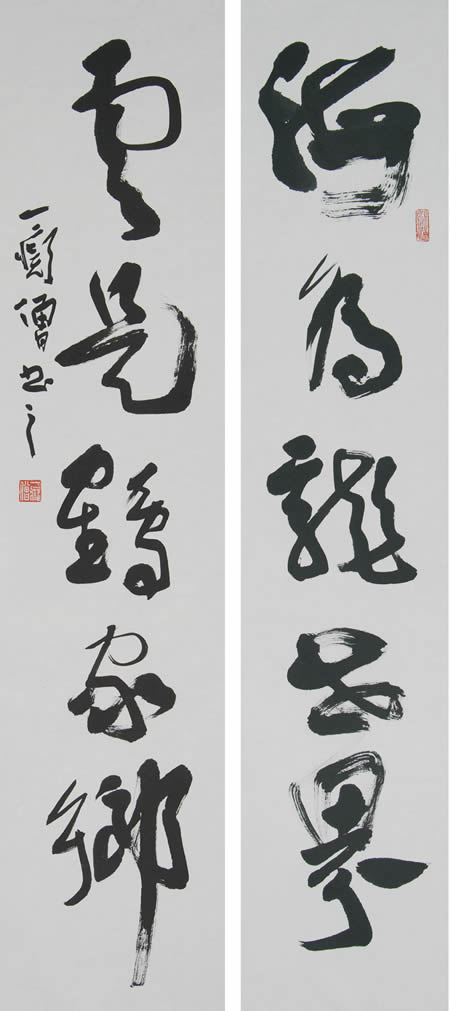 海為龍世界
雲是鶴家鄉
一 僧書之